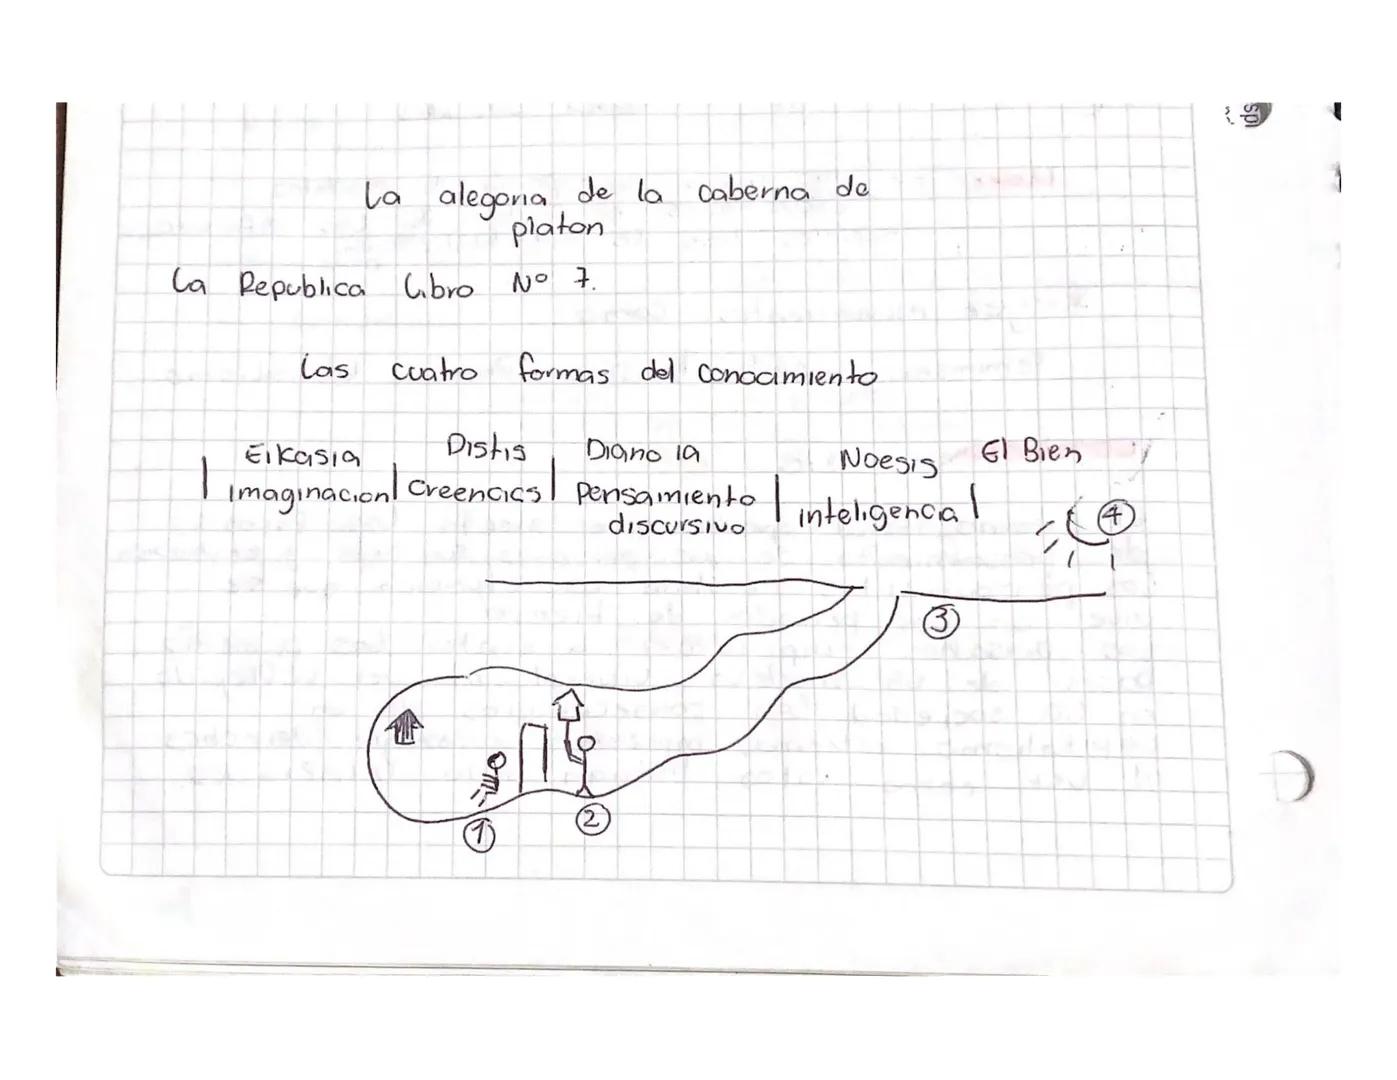 La alegoria de la caberna de
platon
La Republica Libro Nº 7.
Las cuatro formas del conocimiento
Eikasia Distis Diano ia Noesis El Bien
imaginacion Creencics Pensamiento inteligencia
discursivo
4
3
1 2